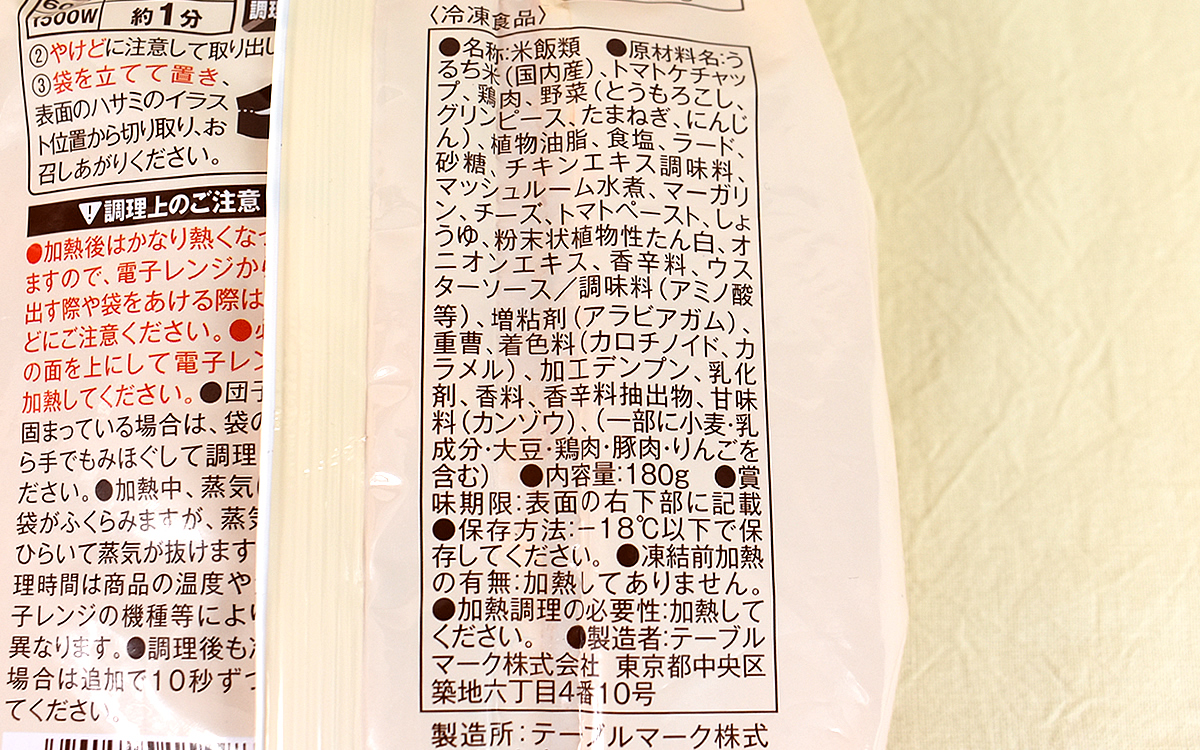 1500W 約1分
②やけどに注意して取り出し
③袋を立てて置き、
表面のハサミのイラス
ト位置から切り取り、お
召しあがりください。
調理上のご注意
●加熱後はかなり熱くなっ
ますので、電子レンジから
出す際や袋をあける際は
どにご注意ください。●必
の面を上にして電子レン
加熱してください。●団子
固まっている場合は、袋の
ら手でもみほぐして調理
ださい。●加熱中、蒸気
袋がふくらみますが、蒸気
ひらいて蒸気が抜けます
理時間は商品の温度や
子レンジの機種等により
異なります。●調理後も冷
場合は追加で10秒ずつ
てください。
〈冷凍食品〉
●名称:米飯類 ●原材料名:う
るち米(国内産)、トマトケチャッ
プ、鶏肉、野菜(とうもろこし、
グリンピース、たまねぎ、にんじ
ん)、植物油脂、食塩、ラード、
砂糖、チキンエキス調味料、
マッシュルーム水煮、マーガリ
ン、チーズ、トマトペースト、しょ
うゆ、粉末状植物性たん白、オ
ニオンエキス、香辛料、ウス
ターソース/調味料(アミノ酸
等)、増粘剤(アラビアガム)、
重曹、着色料(カロチノイド、カ
ラメル)、加工デンプン、乳化
剤、香料、香辛料抽出物、甘味
料(カンゾウ)、(一部に小麦・乳
成分・大豆・鶏肉・豚肉・りんごを
含む) ●内容量:180g ●賞
味期限:表面の右下部に記載
●保存方法:-18℃以下で保
存してください。●凍結前加熱
の有無:加熱してありません。
●加熱調理の必要性:加熱して
ください。 ●製造者:テーブル
マーク株式会社 東京都中央区
築地六丁目4番10号
製造所:テーブルマーク株式